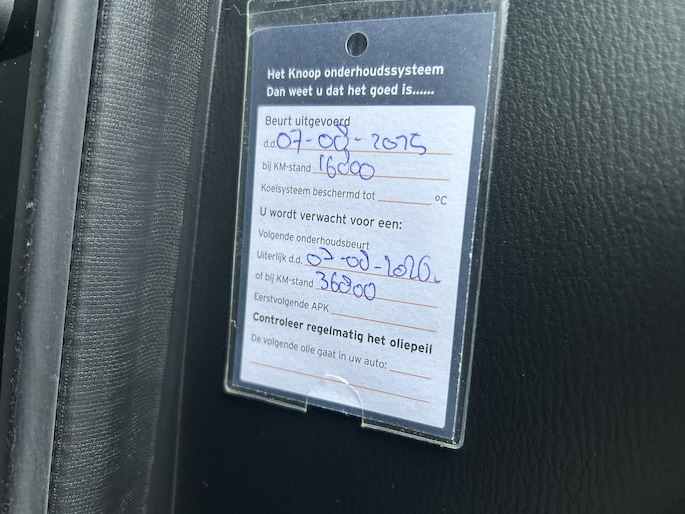 Het Knoop onderhoudssysteem
Dan weet u dat het goed is......
Beurt uitgevoerd
d.d. 07-08-2025
bij KM-stand 16000
Koelsysteem beschermd tot °C
U wordt verwacht voor een:
Volgende onderhoudsbeurt
Uiterlijk d.d. 07-08-2026.
of bij KM-stand 36000
Eerstvolgende APK
Controleer regelmatig het oliepeil
De volgende olie gaat in uw auto: